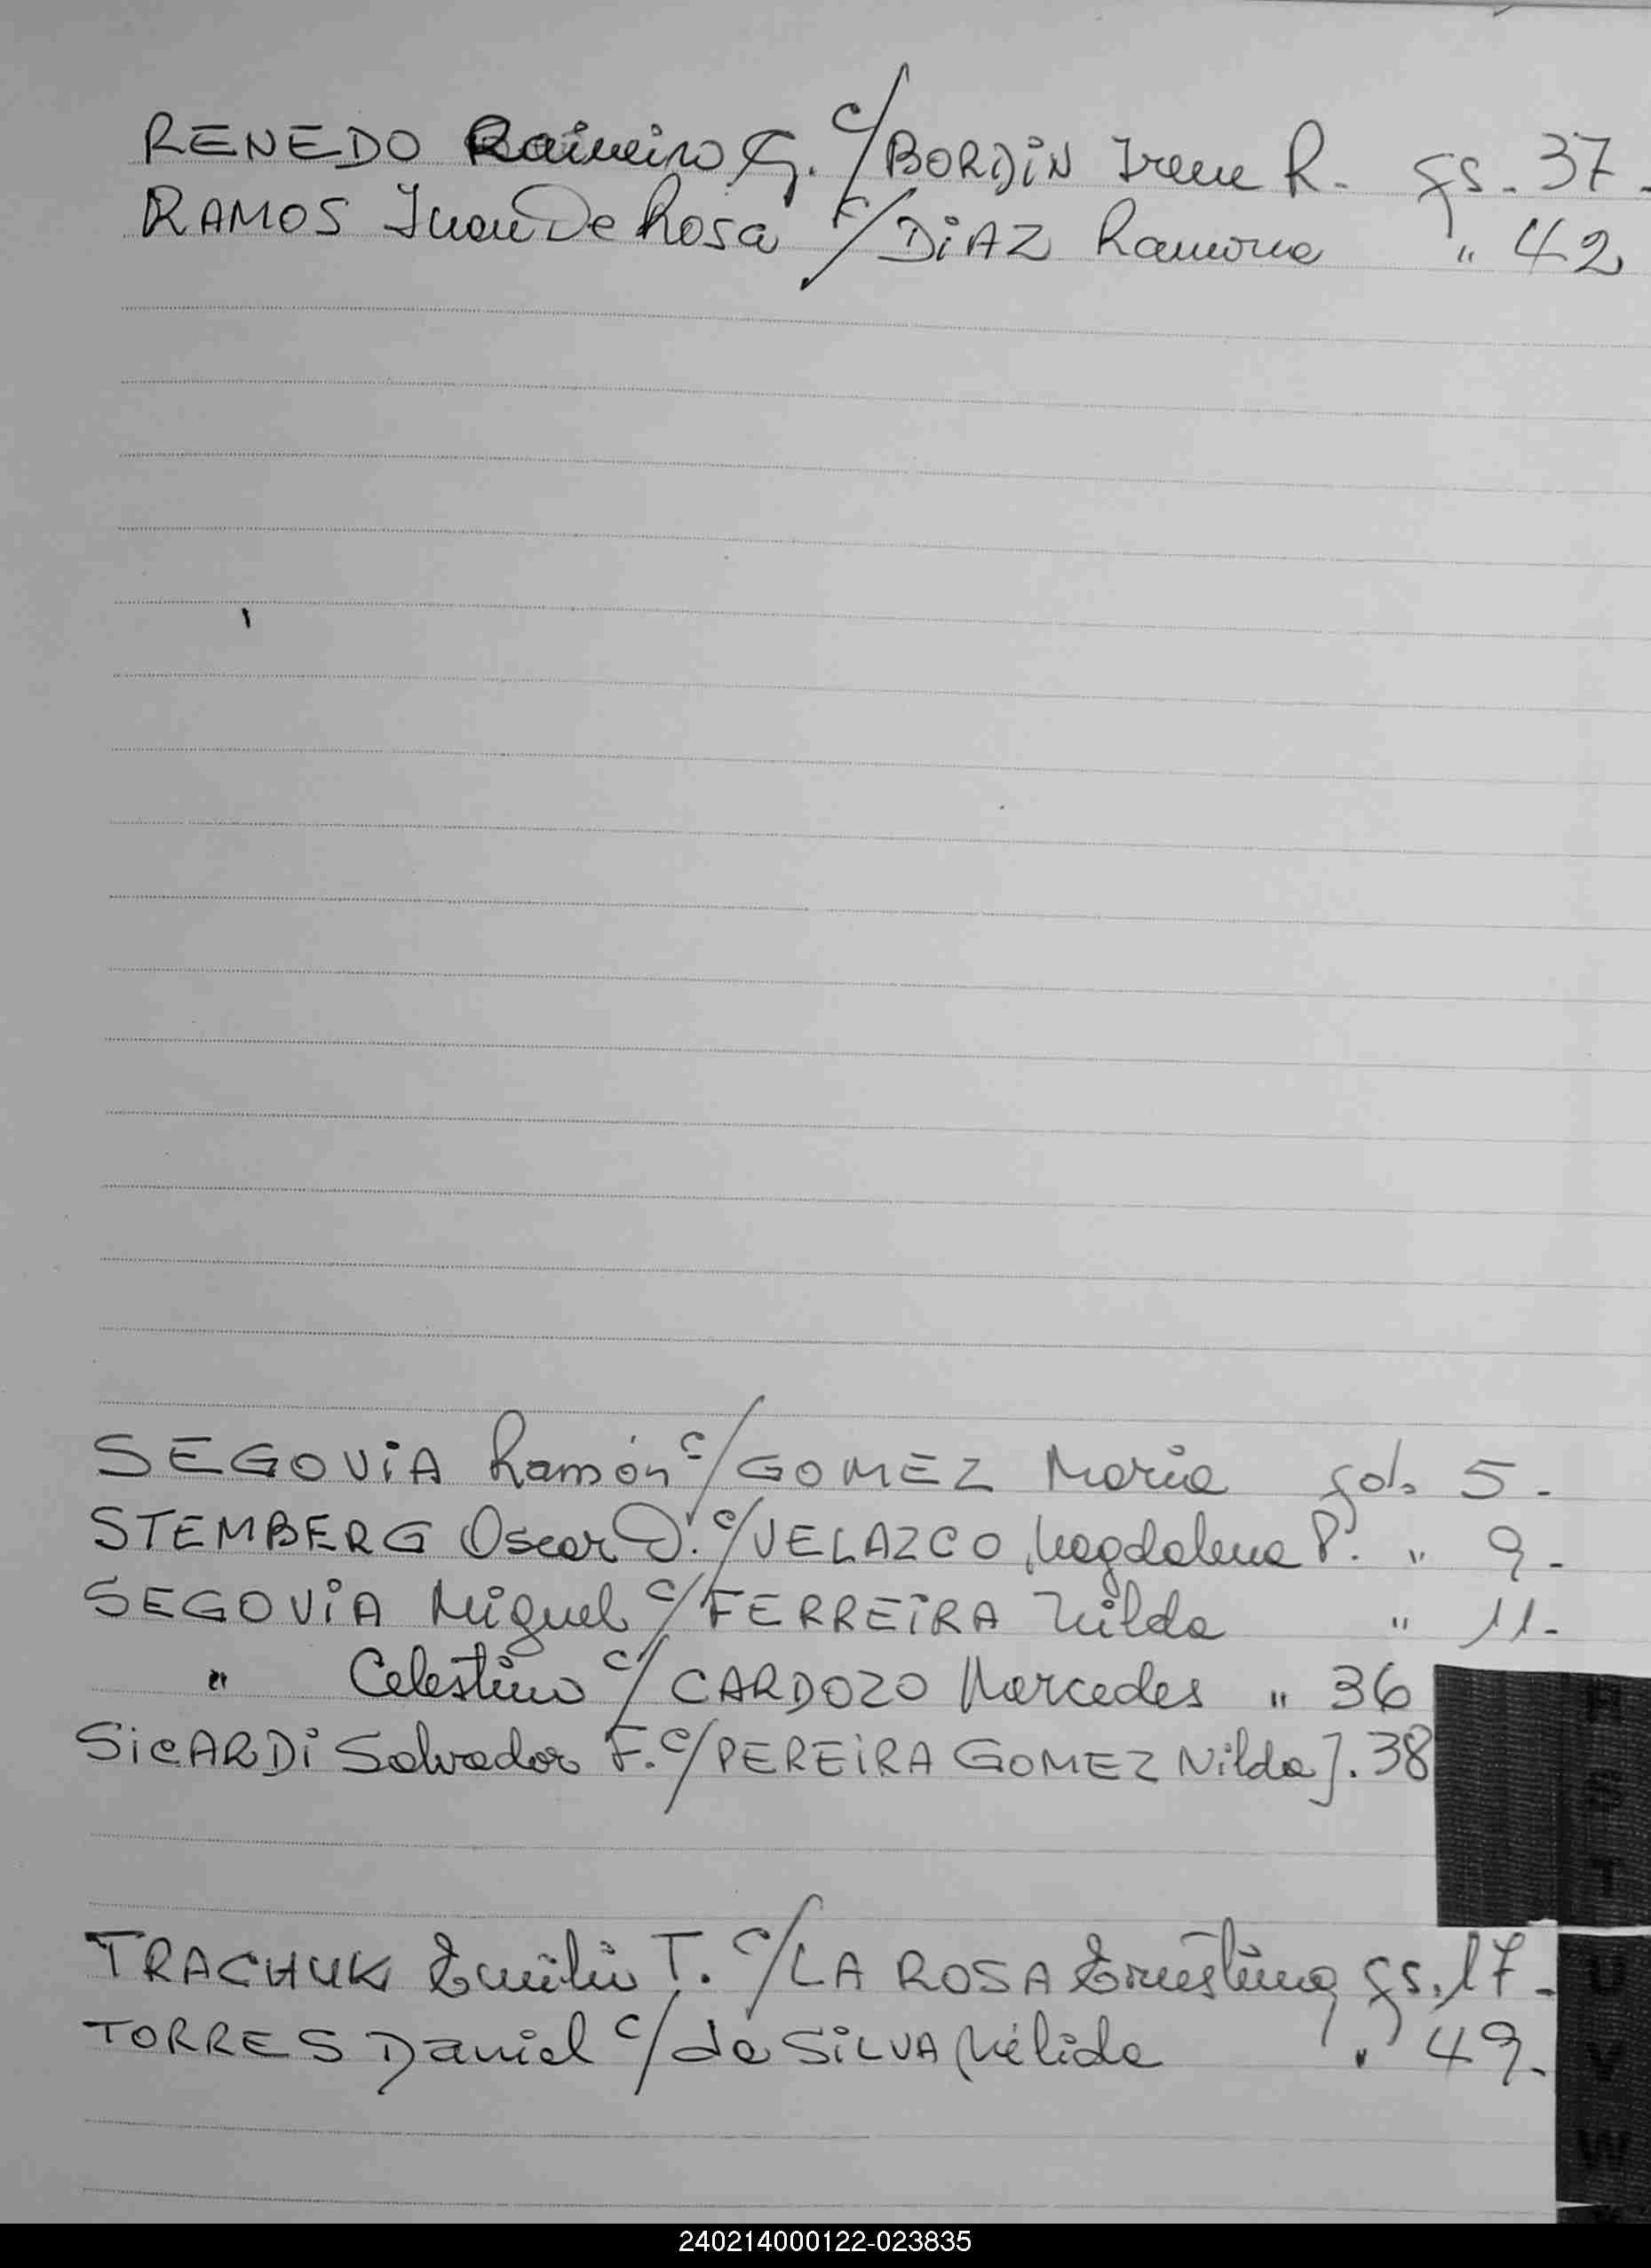 RENEDO Raimiro G. c/ BORDiN Irene R. fs. 37.
RAMOS Juan De Rosa c/ DiAZ Ramona " 42
SEGOViA Ramón c/ GOMEZ Maria fol. 5.
STEMBERG Oscar D. c/ VELAZCO Magdalena P. " 9.
SEGOViA Miguel c/ FERREiRA Nilda " 11.
" Celestino c/ CARDOZO Mercedes " 36
SiCARDi Salvador F. c/ PEREiRA GOMEZ Nilda J. 38
TRACHUK Emilio T. c/ LA ROSA Ernestina fs. 17.
TORRES Daniel c/ da SiLVA Nélida " 49.
R
S
T
U
V
W
240214000122-023835